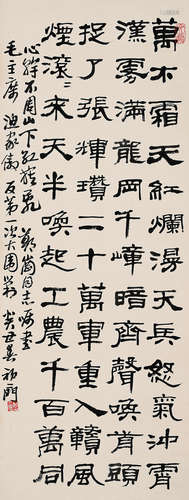 萬木霜天紅爛漫天兵怒氣沖霄
漢霧滿龍岡千嶂暗齊聲喚前頭
捉了張輝瓚二十萬軍重入贛風
煙滾々來天半喚起工農千百萬同
心幹不周山下紅旗亂 同志屬書
毛主席漁家傲反第一次大圍剿 癸丑